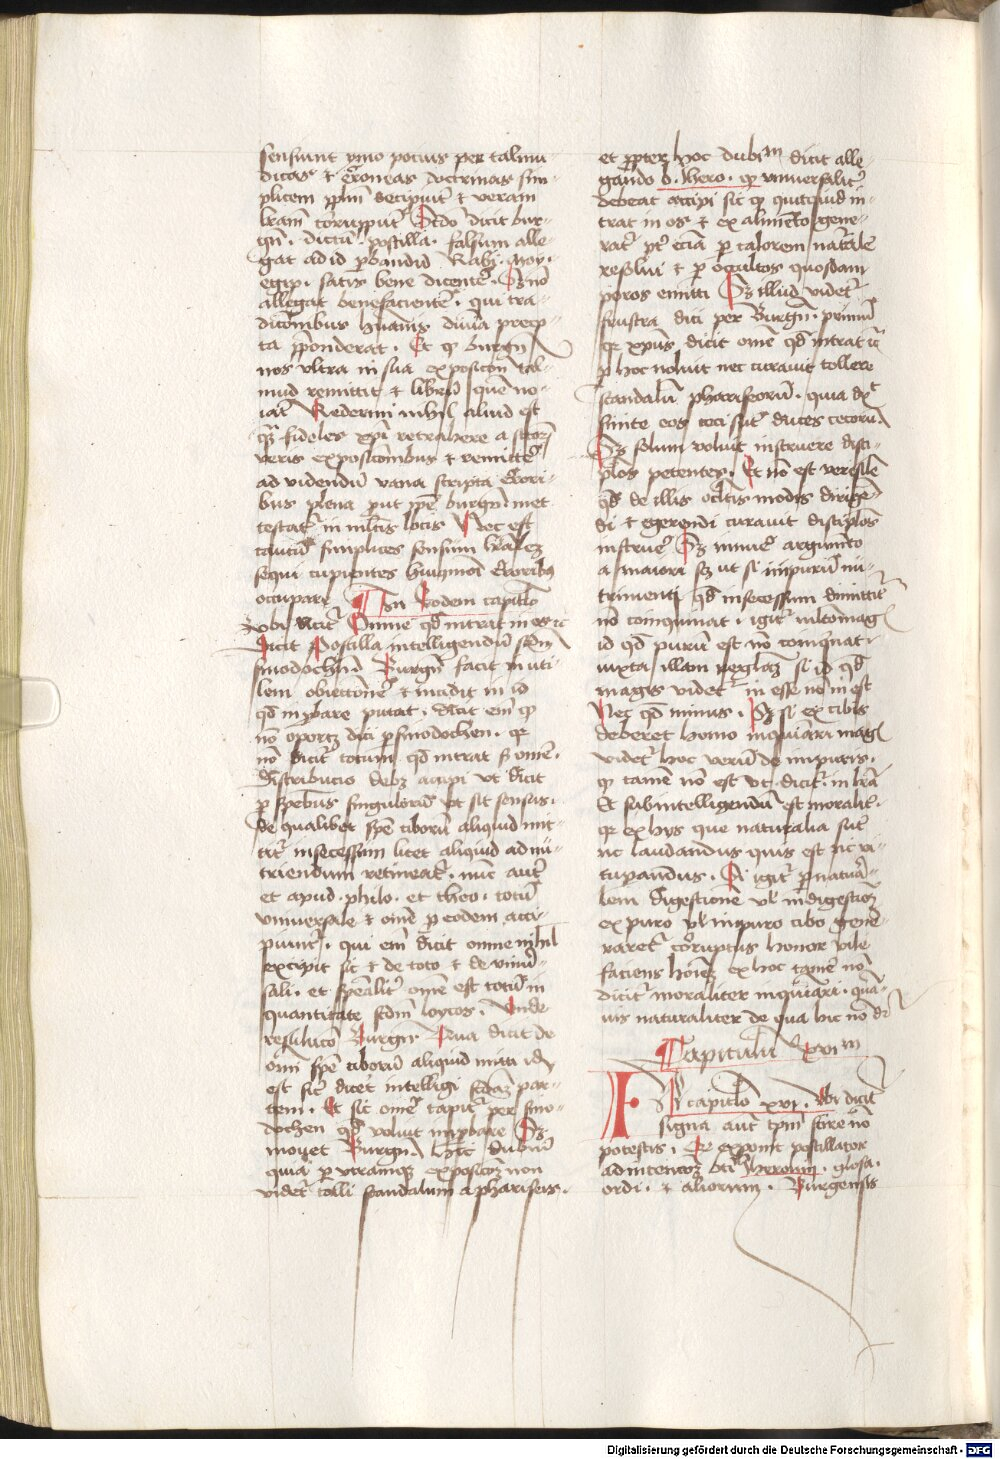 sensiunt ymo potius per talmu-
dicas et erroneas doctrinas sim-
plicem pplm decipiūt et veram
lram corrūppūt Scdo dicit bur-
gn. dictū postilla. falsum alle-
gat ad id pbandū Rabi. moy.
egip. satis bene dicentē. Sz nō
allegat benefacientē. qui tra-
dicōnibus hūanis diuīa precep-
ta pponderat. Et qz burgn
nos vltra in sua exposicōn tal-
mud remittit et librū quē no-
iat Rederim nihil aliud est
qz fideles xpi retrahere a
veris exposicōnibus et remittē
ad videndū vana scripta errori-
bus plena put ipse burgn met
testatᵉ in mltis locis Nec est
tantū simplices sensum lralez
sequi cupientes huiqmoi erroribꝫ
occupare In Eodem capitlo
vbi dicitᵉ Omne qd intrat in os ec
dicit Postilla intelligendū scdm
sinodochen. Burgn facit inuti-
lem obiectōnē et incidit in id
qd inpbare putat. dicit em qz
nō oportz dici p sinodochen. qz
nō dicit totum qd intrat sz omē.
distribucio debz accipi vt dicit
p spēbus singulorū vt sit sensus.
de qualibet spē ciborū aliquid mit-
titᵉ insecessum licet aliquid ad nu-
triendum retineatᵉ. nūc autē
et apud. philo. et theo. totū
vniuersale et omē p eodem acci-
piuntᵉ. qui em dicit omne nihil
excipit sic et de toto et de vniuer-
sali. et spēaliter omē est totū in
quantitate scdm loycos. Vnde
Burgn Qua dicit de
omi spē ciborū aliquid mitti id
est sic dicet intelligi scdm par-
tem. Et sic omē capitᵉ per sino-
dochen qd voluit inpbare Sz
mouet Burgn hic dubiū
quia p vtramqz exposicōz non
videtᵉ tolli scandalum a phariseis.
et ppter hoc dubim dicit alle-
gando b. Jhero. qz vniuersalitᵉ
debeat accipi sic qz quicquid in-
trat in os et ex alimēto gene-
ratᵉ ptᵉ eciā p calorem natalē
resolui et p occultos quosdam
poros emitti Sz illud videtᵉ
frustra dici per Burgn. primū
qz xpus dicit omē qd intrat ec
p hoc noluit nec curauit tollere
scandalū phariseorū. quia dx
sinite eos ceci sūt duces cecorū.
Sz solum voluit instruere disci-
plos petentes. Et nō est verisile
qd de illis occltis modis dirige-
di et egerendi curauit discipulos
instruē Sz innuē argumēto
a maiori sz ut si inpurū nu-
trimenti qd in secessum dimittitᵉ
nō coinquinat. igitᵉ multomag
id qd purū est nō coinqnat.
iuxta illam reglam si id qd
magis videtᵉ in esse nō in est
Nec qd minus. Sz si ex cibis
deberet homo inquinari mag
videtᵉ hoc verū de inpuris.
qz tamē nō est vt dicitᵉ in lra
Et sub intelligendū est moralitᵉ.
qz ex hys que naturalia sūt
nc laudandus quis est nc vi-
tupandus. Si igitᵉ p natura-
lem digestionē vl indigestioz
ex puro vl inpuro cibo gene-
raretᵉ corruptus honor vile
faciens hoīez ex hoc tamē nō
dicitᵉ moraliter inquinari. quā-
uis naturaliter de qua hic nō dr
Capitulū xvim
IN capitlo xvi. vbi dicitᵉ
signa autē tpm scire nō
potestis. Et exponit postillator
ad intencoz bti Jheronimi. glosa.
ordi. et aliorum. Burgensis
Digitalisierung gefördert durch die Deutsche Forschungsgemeinschaft - DFG